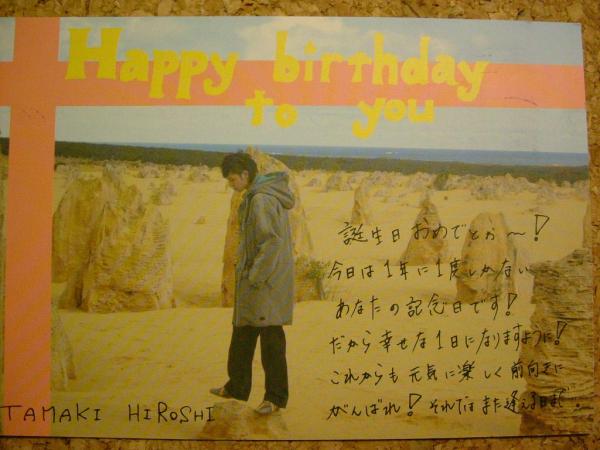 Happy birthday
to you
誕生日おめでとお〜!
今日は1年に1度しかない
あなたの記念日です!
だから幸せな1日になりますように!
これからも元気に楽しく前向きに
がんばれ! それではまた逢える日まで.
TAMAKI HIROSHI